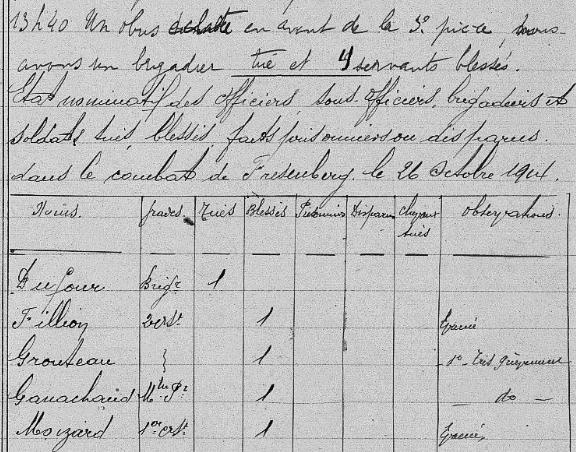 13h40 Un obus éclate en avant de la 3e pièce, nous
avons un brigadier tué et 4 servants blessés.
Etat nominatif des officiers, sous-officiers, brigadiers et
soldats, tués, blessés, faits prisonniers ou disparus
dans le combat de Fresenberg le 26 Octobre 1914.
Noms. grades. Tués Blessés Prisonniers Disparus Chevaux tués Observations.
Dufour Brigr 1
Fillion 2e cst 1
Grouteau } 1
Ganachaud 1
Moizard 1er cst. 1